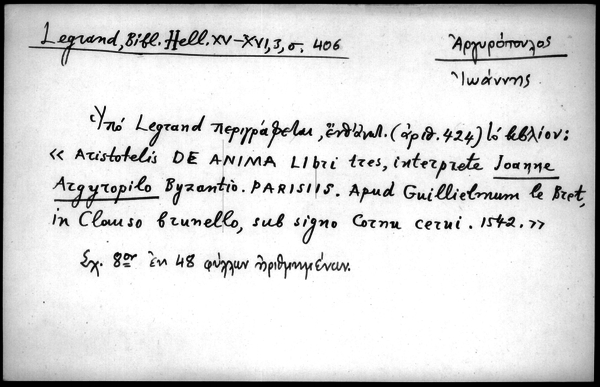 Legrand, Bibl. Hell. XV–XVI, 3, σ. 406
Ἀργυρόπουλος
Ἰωάννης
Ὑπό Legrand περιγράφεται, ἐνθ' ἀνωτ. (ἀριθ. 424) τό βιβλίον:
« Aristotelis DE ANIMA Libri tres, interprete Joanne
Argyropilo Byzantio. PARISIIS. Apud Guillielmum le Bret,
in Clauso brunello, sub signo Cornu cerui. 1542. »
Σχ. 8ον ἐκ 48 φύλλων ἠριθμημένων.